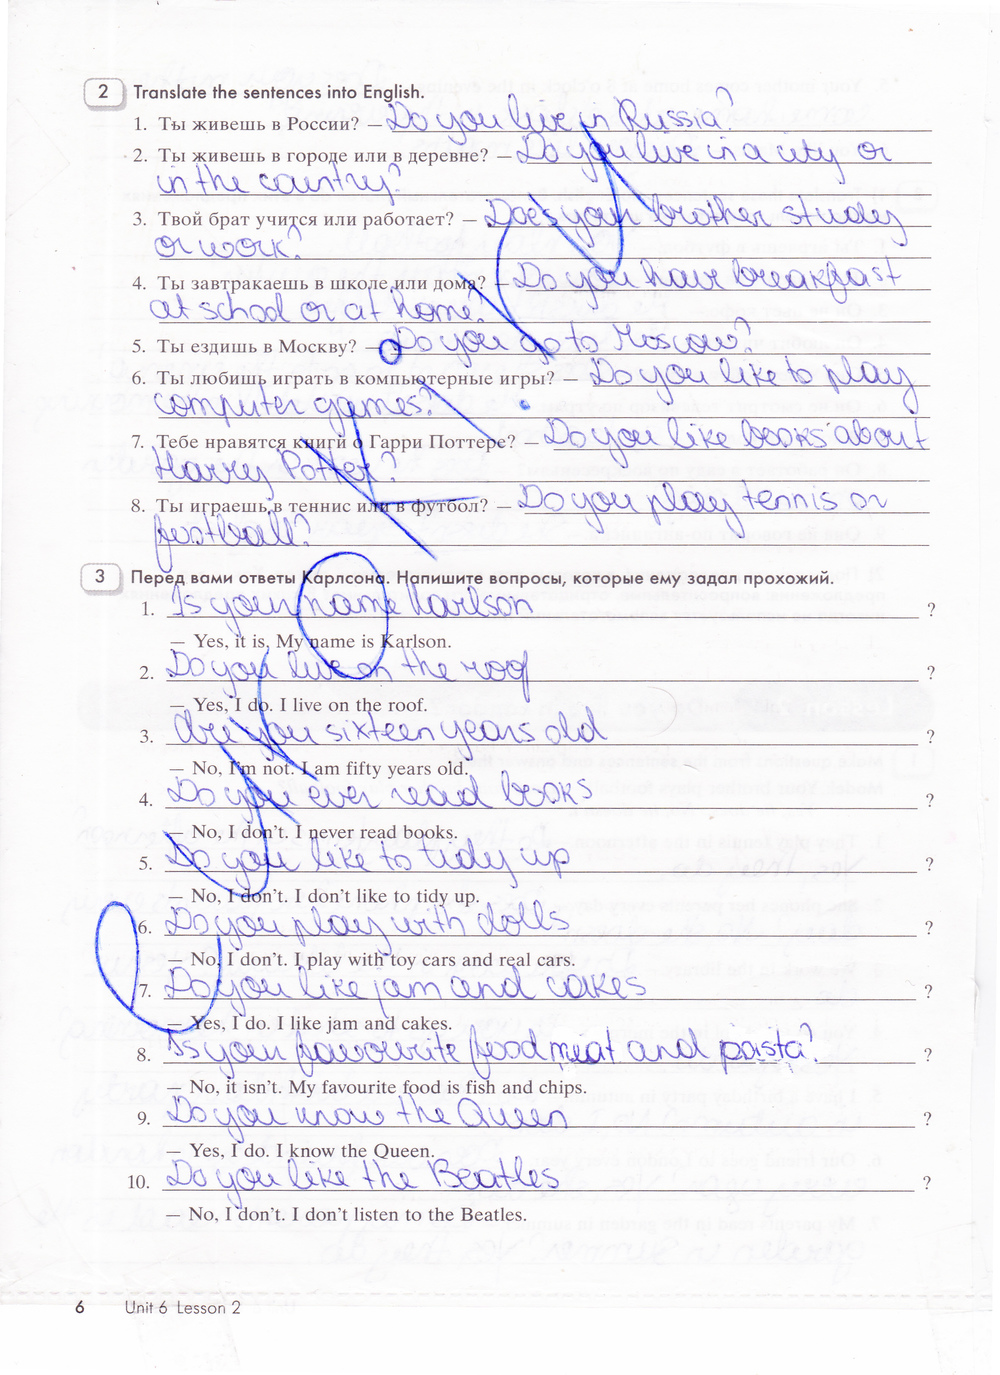 2 Translate the sentences into English.
1. Ты живешь в России? – Do you live in Russia?
2. Ты живешь в городе или в деревне? – Do you live in a city or
in the country?
3. Твой брат учится или работает? – Does your brother study
or work?
4. Ты завтракаешь в школе или дома? – Do you have breakfast
at school or at home?
5. Ты ездишь в Москву? – Do you go to Moscow?
6. Ты любишь играть в компьютерные игры? – Do you like to play
computer games?
7. Тебе нравятся книги о Гарри Поттере? – Do you like books about
Harry Potter?
8. Ты играешь в теннис или в футбол? – Do you play tennis or
football?
3 Перед вами ответы Карлсона. Напишите вопросы, которые ему задал прохожий.
1. Is your name Karlson ?
– Yes, it is, My name is Karlson.
2. Do you live on the roof ?
– Yes, I do. I live on the roof.
3. Are you sixteen years old ?
– No, I'm not. I am fifty years old.
4. Do you ever read books ?
– No, I don't. I never read books.
5. Do you like to tidy up ?
– No, I don't. I don't like to tidy up.
6. Do you play with dolls ?
– No, I don't. I play with toy cars and real cars.
7. Do you like jam and cakes ?
– Yes, I do. I like jam and cakes.
8. Is your favourite food meat and pasta? ?
– No, it isn't. My favourite food is fish and chips.
9. Do you know the Queen ?
– Yes, I do. I know the Queen.
10. Do you like the Beatles ?
– No, I don't. I don't listen to the Beatles.
6 Unit 6 Lesson 2